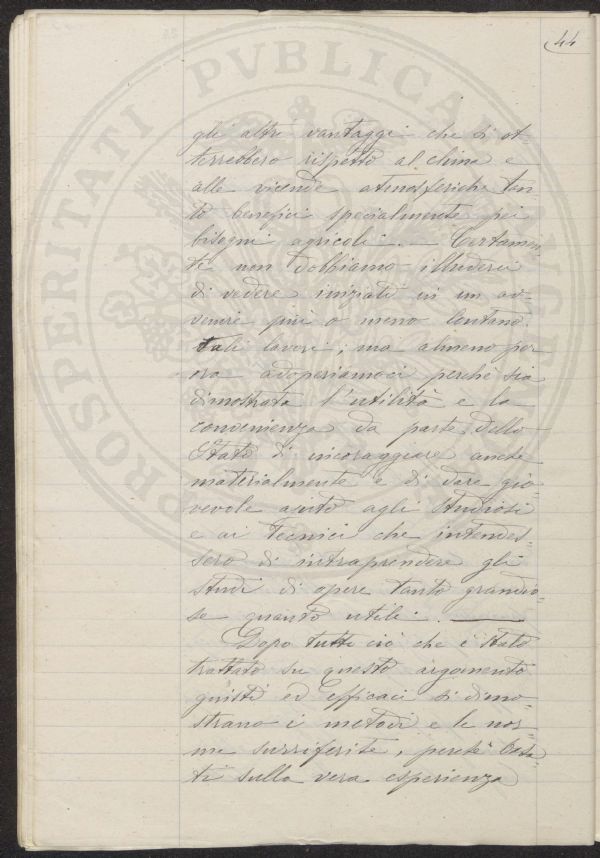 44
gli altri vantaggi che si ot-
terrebbero rispetto al clima e
alle vicende atmosferiche tan
to benefici specialmente pei
bisogni agricoli. — Certamen-
te non dobbiamo illuderci
di vedere iniziati in un av-
venire più o meno lontano
tali lavori; ma almeno per
ora adoperiamoci perchè sia
dimostrata l'utilità e la
convenienza da parte dello
Stato di incoraggiare anche
materialmente e di dare gio-
vevole aiuto agli studiosi
e ai tecnici che intendes-
sero di intraprendere gli
studi di opere tanto grandio-
se quanto utili. —
Dopo tutto ciò che è stato
trattato su questo argomento
giusti ed efficaci si dimo-
strano i metodi e le nor-
me surriferite, perchè basa-
ti sulla vera esperienza
PROSPERITATI PVBLICAE